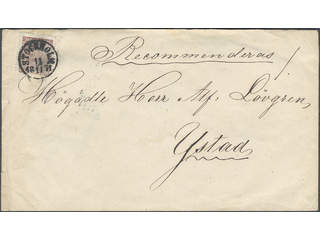 STOCKHOLM
11
Recommenderas!
Högädle Herr Alf. Lövgren,
Ystad